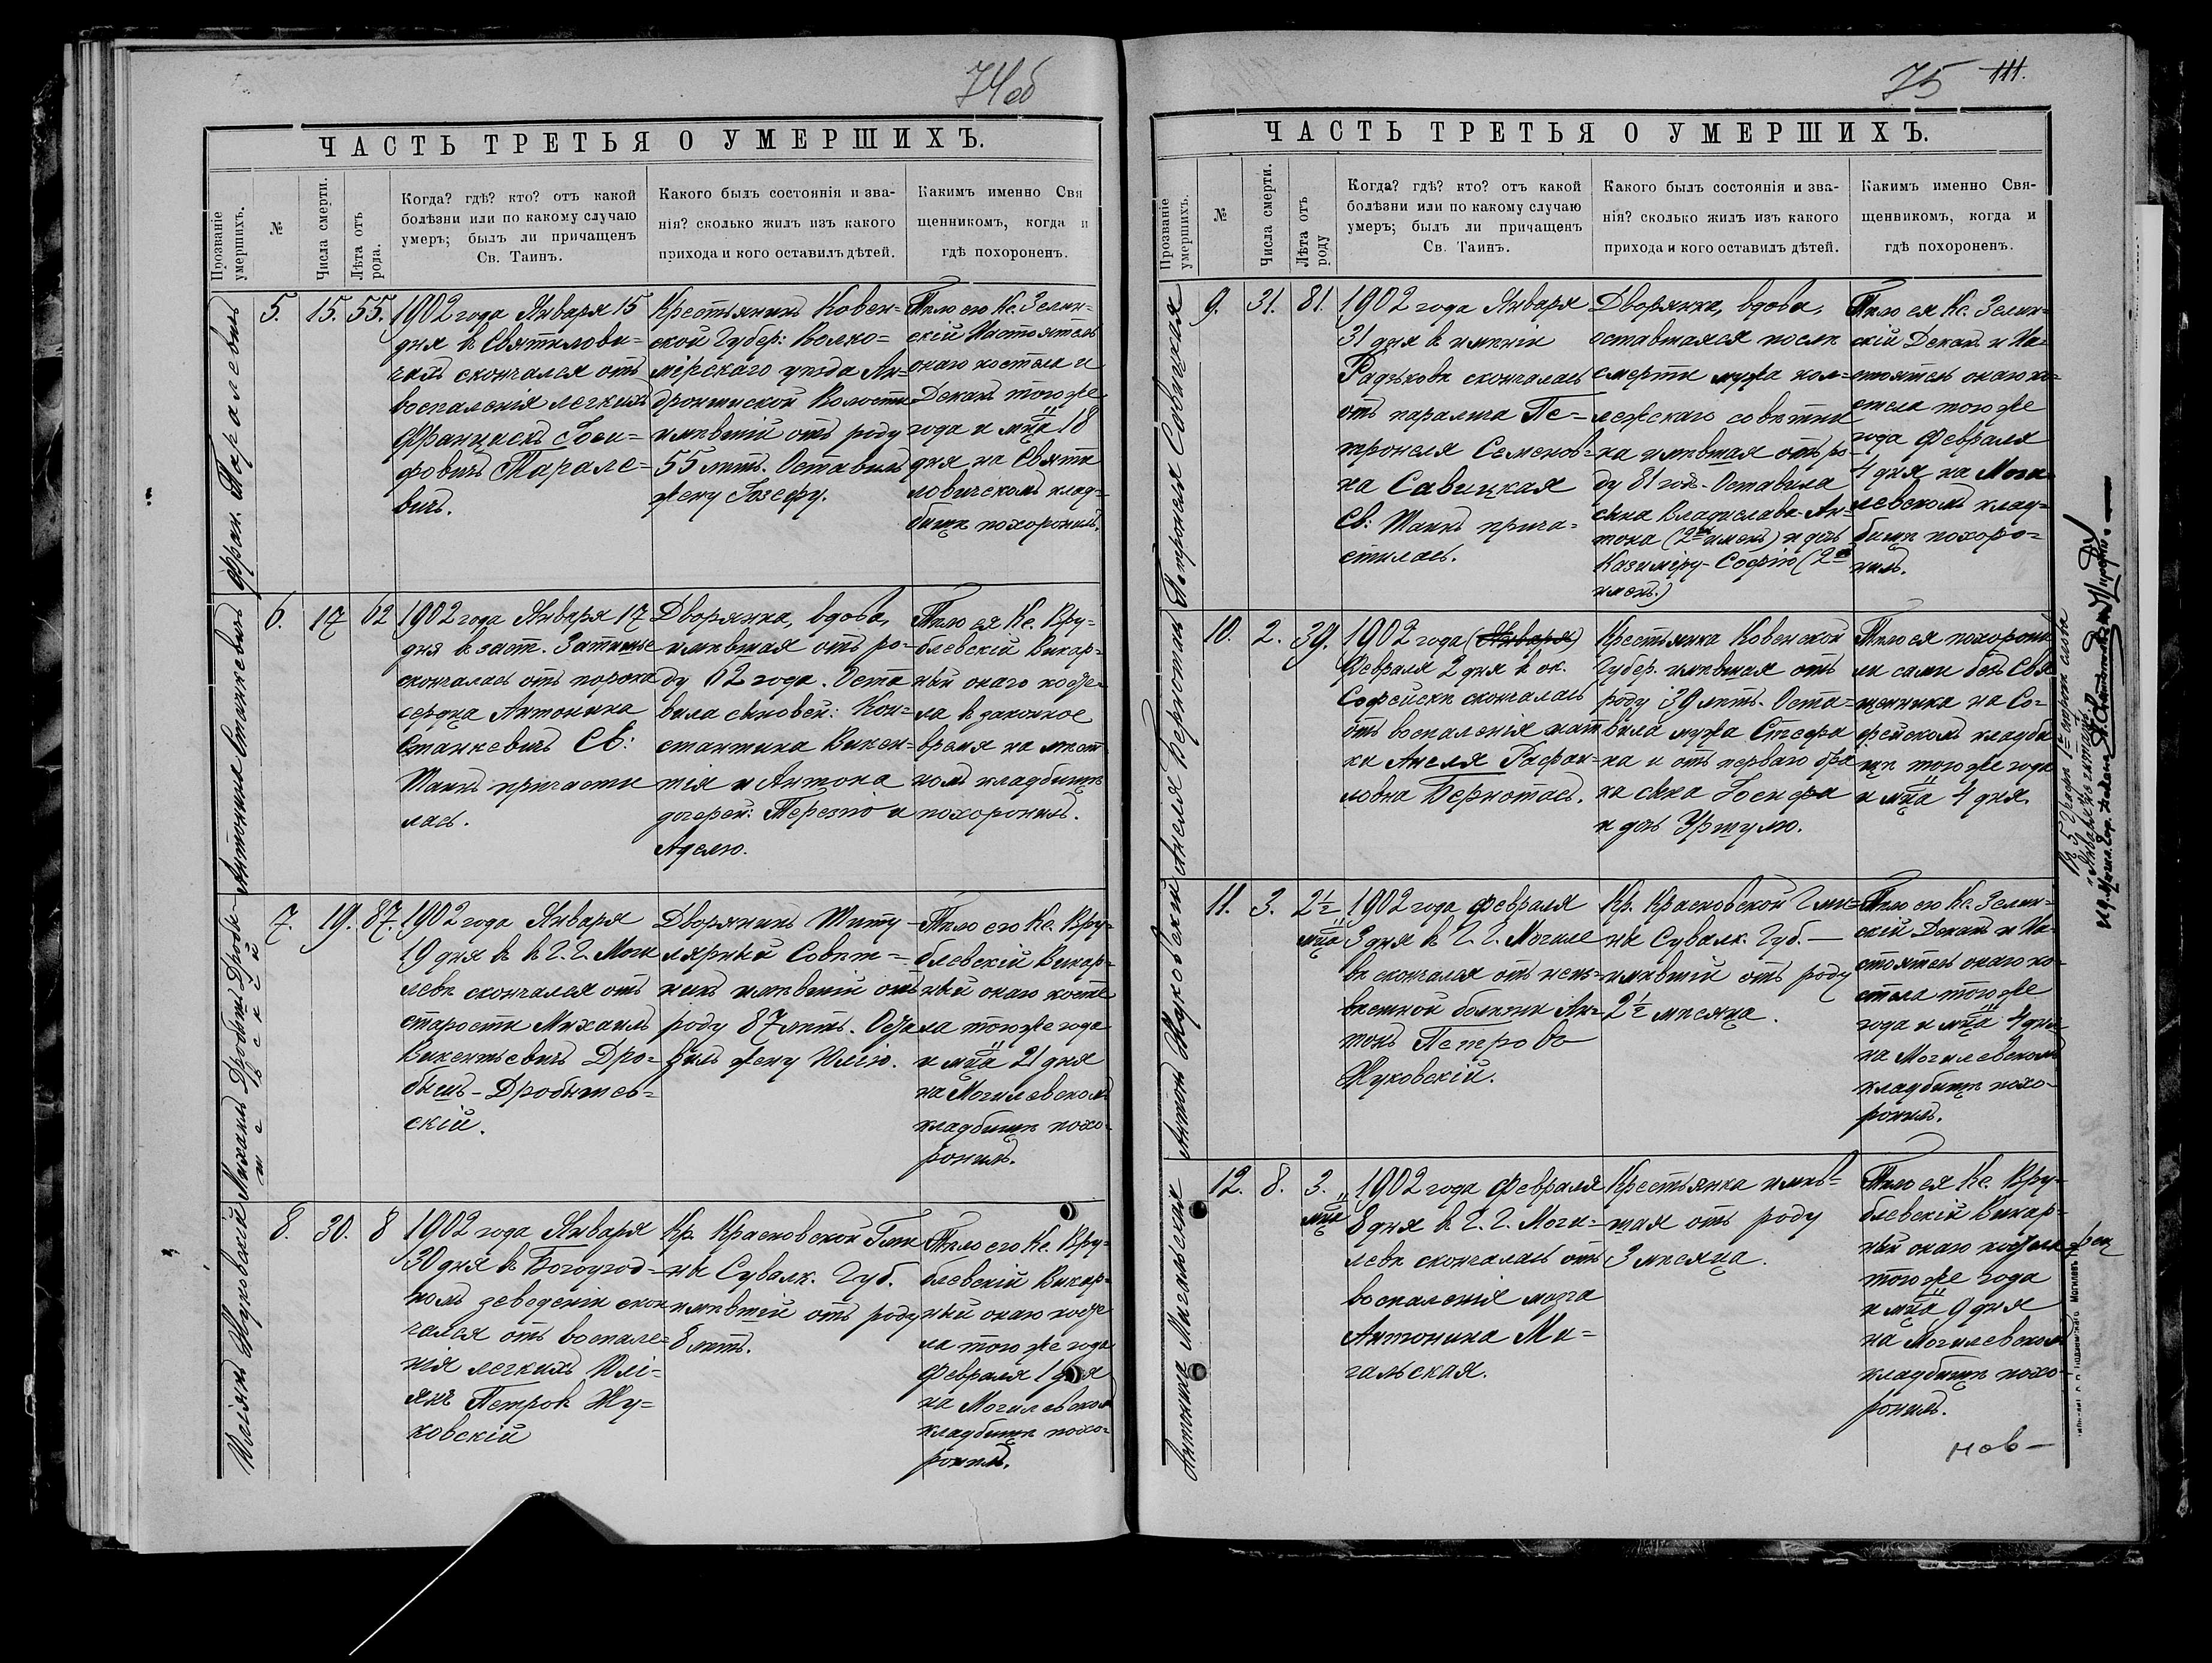 74об
ЧАСТЬ ТРЕТЬЯ О УМЕРШИХЪ.
Прозваніе умершихъ.
№
Числа смерти.
Лѣта отъ рода.
Когда? гдѣ? кто? отъ какой
болѣзни или по какому случаю
умеръ; былъ ли причащенъ
Св. Таинъ.
Какого былъ состоянія и зва-
нія? сколько жилъ изъ какого
прихода и кого оставилъ дѣтей.
Какимъ именно Свя
щенникомъ, когда и
гдѣ похороненъ.
Фран. Таралевичъ
5.
15.
55.
1902 года Января 15
дня в Святилови-
чахъ скончался отъ
воспаленія легкихъ
Францискъ Іоси-
фовичъ Тарале-
вичъ.
Крестьянинъ Ковен-
ской Губер: Волко-
мірскаго уѣзда Ан-
дронишской Волости
имѣвшій отъ роду
55 лѣтъ. Оставилъ
жену Іозефу.
Тѣло его Кс. Зелин-
скій Настоятель
онаго костела и
Деканъ того же
года и мца 18
дня на Святи
ловичскомъ клад-
бищѣ похоронилъ.
Антонина Станкевичъ
6.
17
62
1902 года Января 17
дня в заст. Затишье
скончалась отъ порока
сердца Антонина
Станкевичъ Св:
Таинъ причасти
лась.
Дворянка, вдова,
имѣвшая отъ ро-
ду 62 года. Оста
вила сыновей: Кон-
стантина Викен-
тія и Антона
дочерей: Терезію и
Аделю.
Тѣло ея Кс. Вру-
блевскій Викар-
ный онаго косте-
ла в законное
время на мѣст
номъ кладбищѣ
похоронилъ.
Михаилъ Дробышъ-Дробы-
шевскій
7.
19.
87.
1902 года Января
19 дня в в Г. Г. Моги
левѣ скончался отъ
старости Михаилъ
Викентьевичъ Дро-
бышъ-Дробышев-
скій.
Дворянинъ Титу-
лярный Совѣт-
никъ имѣвшій отъ
роду 87 лѣтъ. Оста
вилъ жену Юлію.
Тѣло его Кс. Вру-
блевскій Викар-
ный онаго косте
ла того же года
и мца 21 дня
на Могилевскомъ
кладбищѣ похо-
ронилъ.
Юліянъ Жуковскій
8.
30.
8
1902 года Января
30 дня в Богоугод-
номъ заведеніи скон
чался отъ воспале-
нія легкихъ Юлі-
янъ Петров Жу-
ковскій
Кр. Красновской Гми
ны Сувалк. Губ.
имѣвшій отъ роду
8 лѣтъ.
Тѣло его Кс. Вру-
блевскій Викар-
ный онаго косте
ла того же года
Февраля 1 дня
на Могилевском
кладбищѣ похо-
ронилъ.
75 111.
ЧАСТЬ ТРЕТЬЯ О УМЕРШИХЪ.
Прозваніе умершихъ.
№
Числа смерти.
Лѣта отъ роду
Когда? гдѣ? кто? отъ какой
болѣзни или по какому случаю
умеръ; былъ ли причащенъ
Св. Таинъ.
Какого былъ состоянія и зва-
нія? сколько жилъ изъ какого
прихода и кого оставилъ дѣтей.
Какимъ именно Свя-
щенникомъ, когда и
гдѣ похороненъ.
Петронеля Савицкая
9.
31.
81.
1902 года Января
31 дня в имѣніи
Радьковѣ скончалась
отъ паралича Пе-
тронеля Семенов-
на Савицкая
Св: Таинъ прича-
стилась.
Дворянка, вдова,
оставшаяся послѣ
смерти мужа кол-
лежскаго совѣтни
ка имѣвшая отъ ро-
ду 81 годъ. Оставила
сына Владислава-Ан-
тона (2хъ именъ) и дочь
Казиміру-Софію (2хъ
именъ.)
Тѣло ея Кс. Зелин-
скій Деканъ и На-
стоятель онаго ко-
стела того же
года Февраля
4 дня на Моги-
левскомъ клад-
бищѣ похоро-
нилъ.
Анеля Бернотасъ
10.
2.
39.
1902 года (Января)
Февраля 2 дня в ок.
Софейскѣ скончалась
отъ воспаленія мат
ки Анеля Рафаи-
ловна Бернотасъ.
Крестьянка Ковенской
Губер. имѣвшая отъ
роду 39 лѣтъ. Оста-
вила мужа Стефа
на и отъ перваго бра
ка сына Іосифа
и дочь Уршулю.
Тѣло ея похорони
ли сами безъ Свя
щенника на Со-
фейскомъ кладби
щѣ того же года
и мца 4 дня.
Антонъ Жуковскій
11.
3.
2½ мца
1902 года Февраля
3 дня в Г. Г. Могиле
вѣ скончался отъ неиз-
вѣстной болѣзни Ан-
тонъ Петровъ
Жуковскій.
Кр. Красновской Гми-
ны Сувалк. Губ.—
имѣвшій отъ роду
2½ мѣсяца.
Тѣло его Кс. Зелин-
скій Деканъ и На-
стоятель онаго ко-
стела того же
года и мца 4 дня
на Могилевскомъ
кладбищѣ похо-
ронилъ.
Антонина Мигальская
12.
8.
3. мца
1902 года Февраля
8 дня в Г. Г. Моги-
левѣ скончалась отъ
воспаленія мозга
Антонина Ми-
гальская.
Крестьянка имѣв-
шая отъ роду
3 мѣсяца.
Тѣло ея Кс. Вру-
блевскій Викар-
ный онаго костела
того же года
и мца 9 дня
на Могилевском
кладбищѣ похо-
ронилъ.
нов—
"Января" не читать